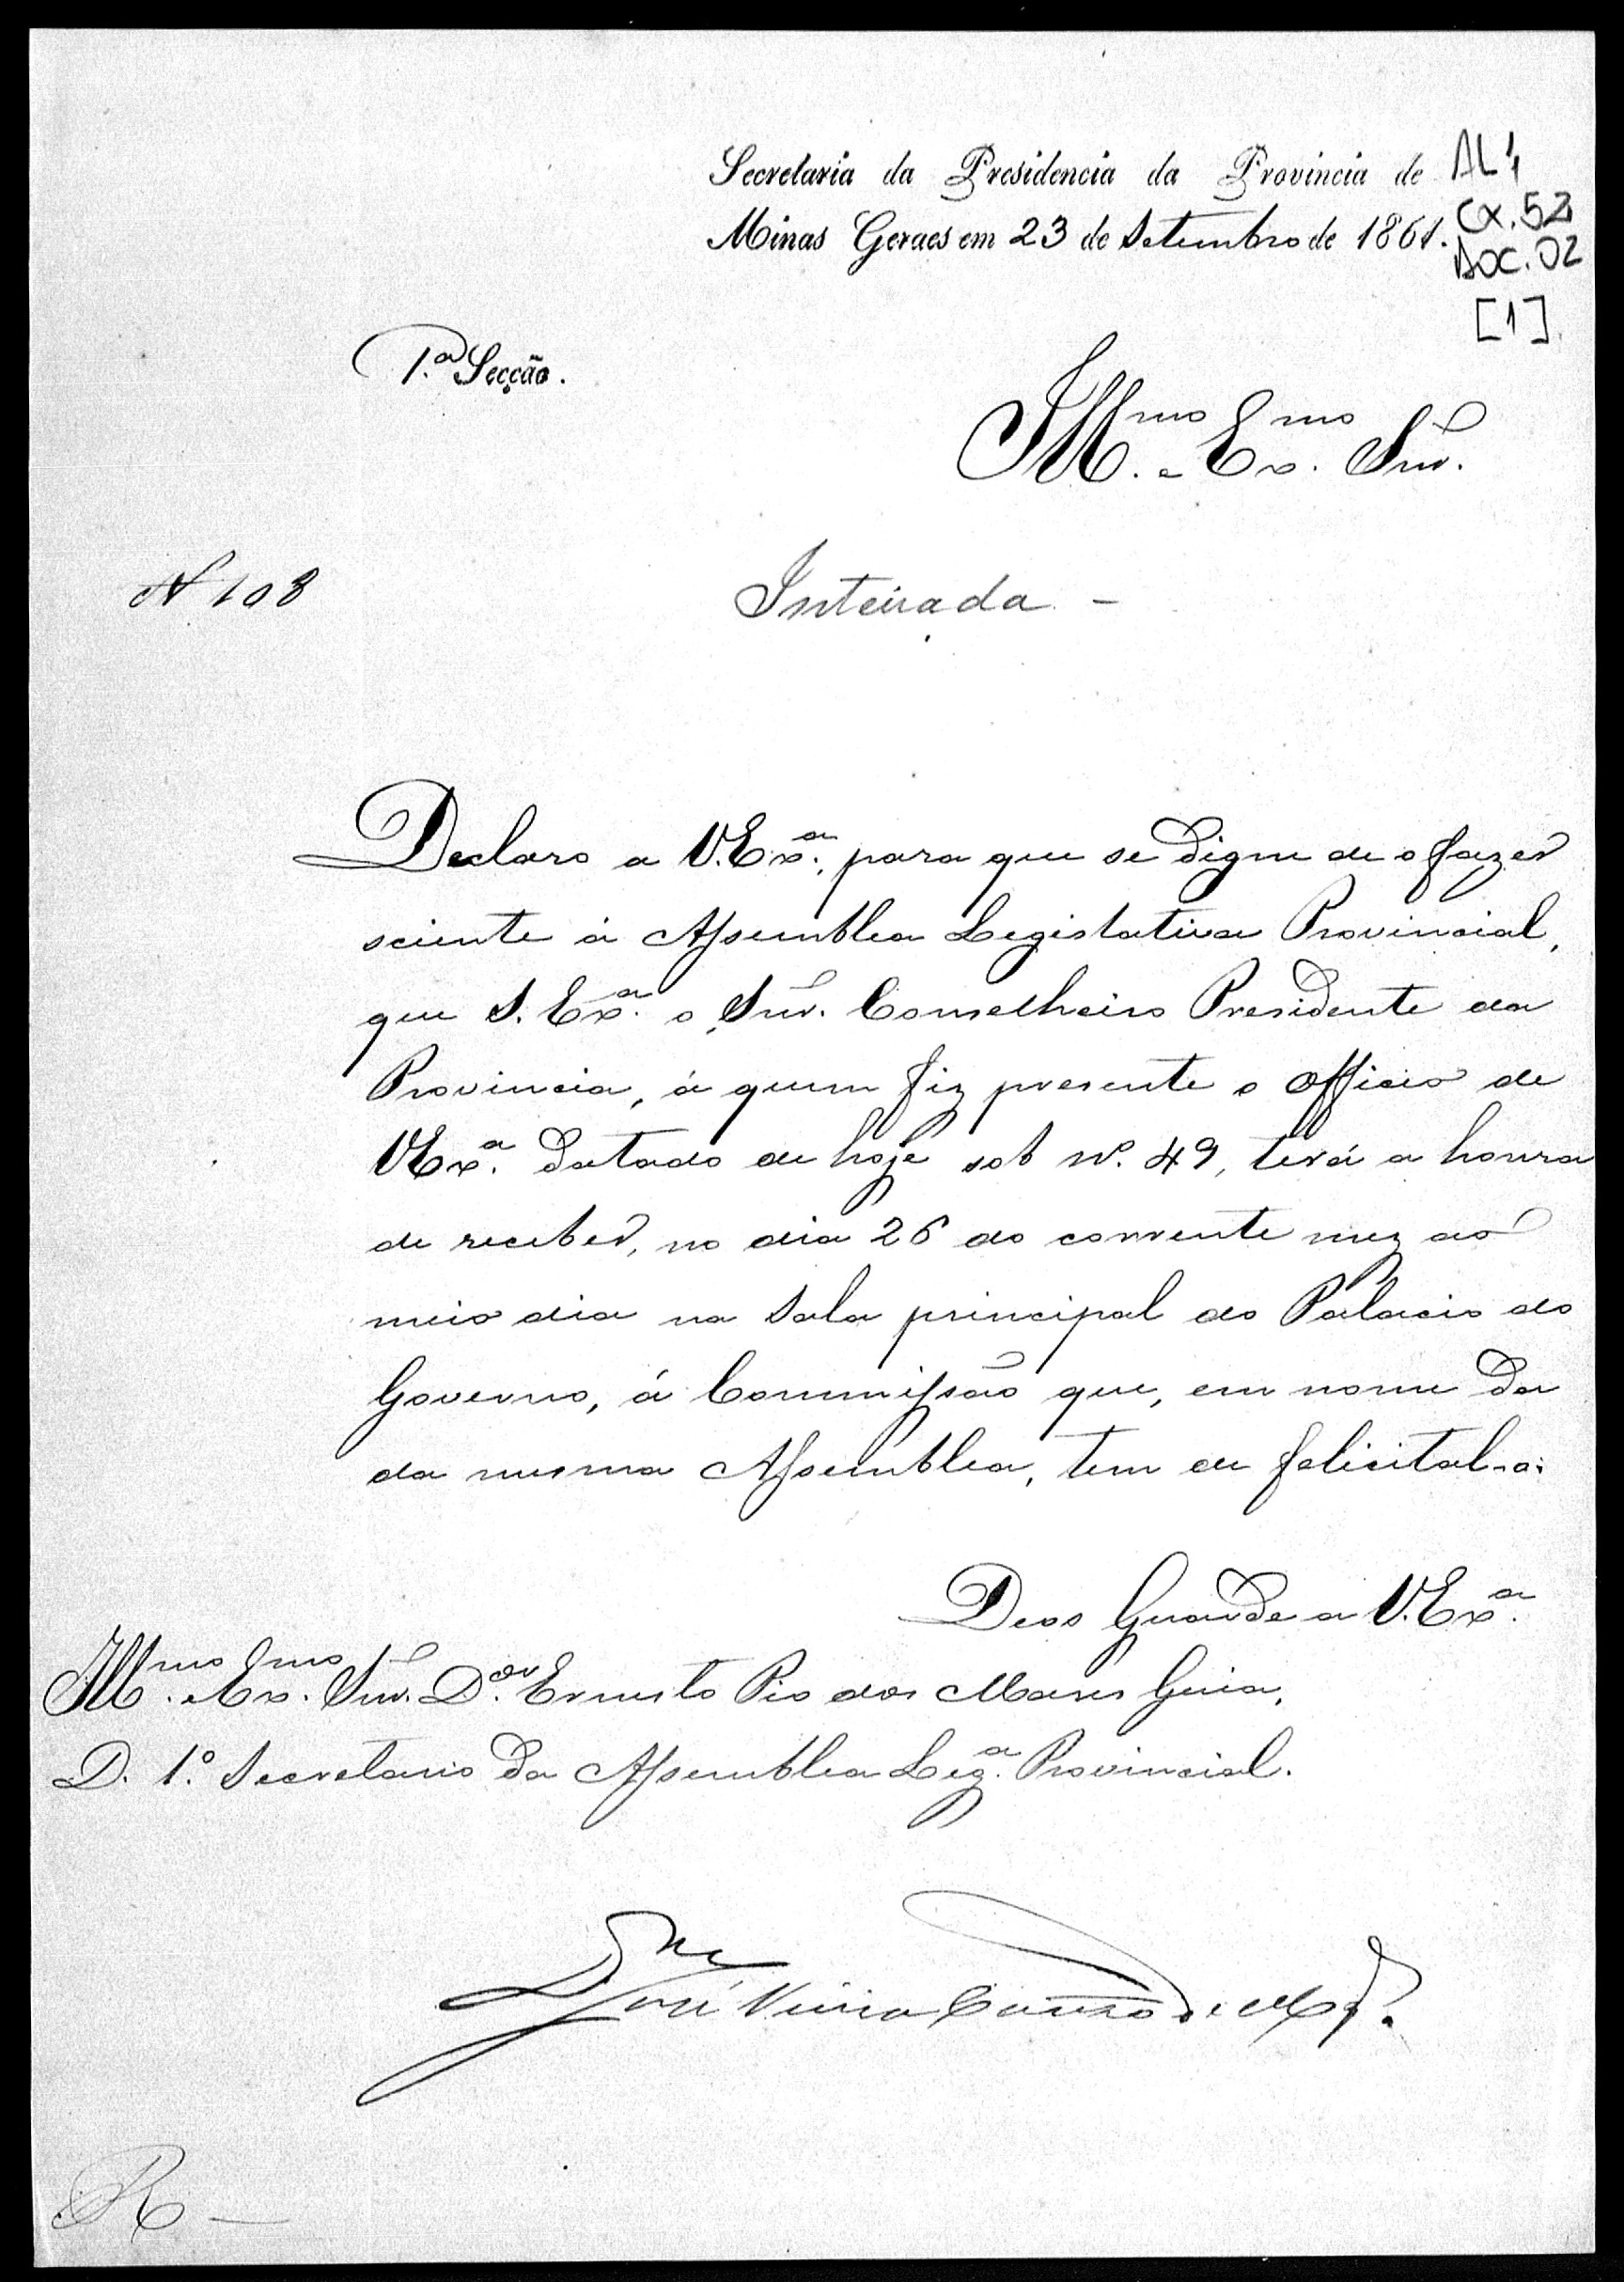 Secretaria da Presidencia da Provincia de
Minas Geraes em 23 de Setembro de 1861.
AL 4
CX. 52
DOC. 02
[1]
1.ª Secção.
Ill.mo e Ex.mo Snr.
N 108
Inteirada -
Declaro a V. Ex.ª, para que se digne de o fazer
sciente á Assemblea Legislativa Provincial,
que S. Ex.ª o Snr. Conselheiro Presidente da
Provincia, á quem fiz presente o officio de
V Ex.ª datado de hoje sob nº. 49, terá a honra
de receber, no dia 26 do corrente mez ao
meio dia na Sala principal do Palacio do
Governo, á Commissão que, em nome da
da mesma Assemblea, tem de felicital-o.
Deos Guarde a V. Ex.ª
Ill.mo e Ex.mo Snr. D.or Ernesto Pio dos Mares Guia,
D. 1.º Secretario da Assemblea Leg.ª Provincial.
José Vieira Couto de
R